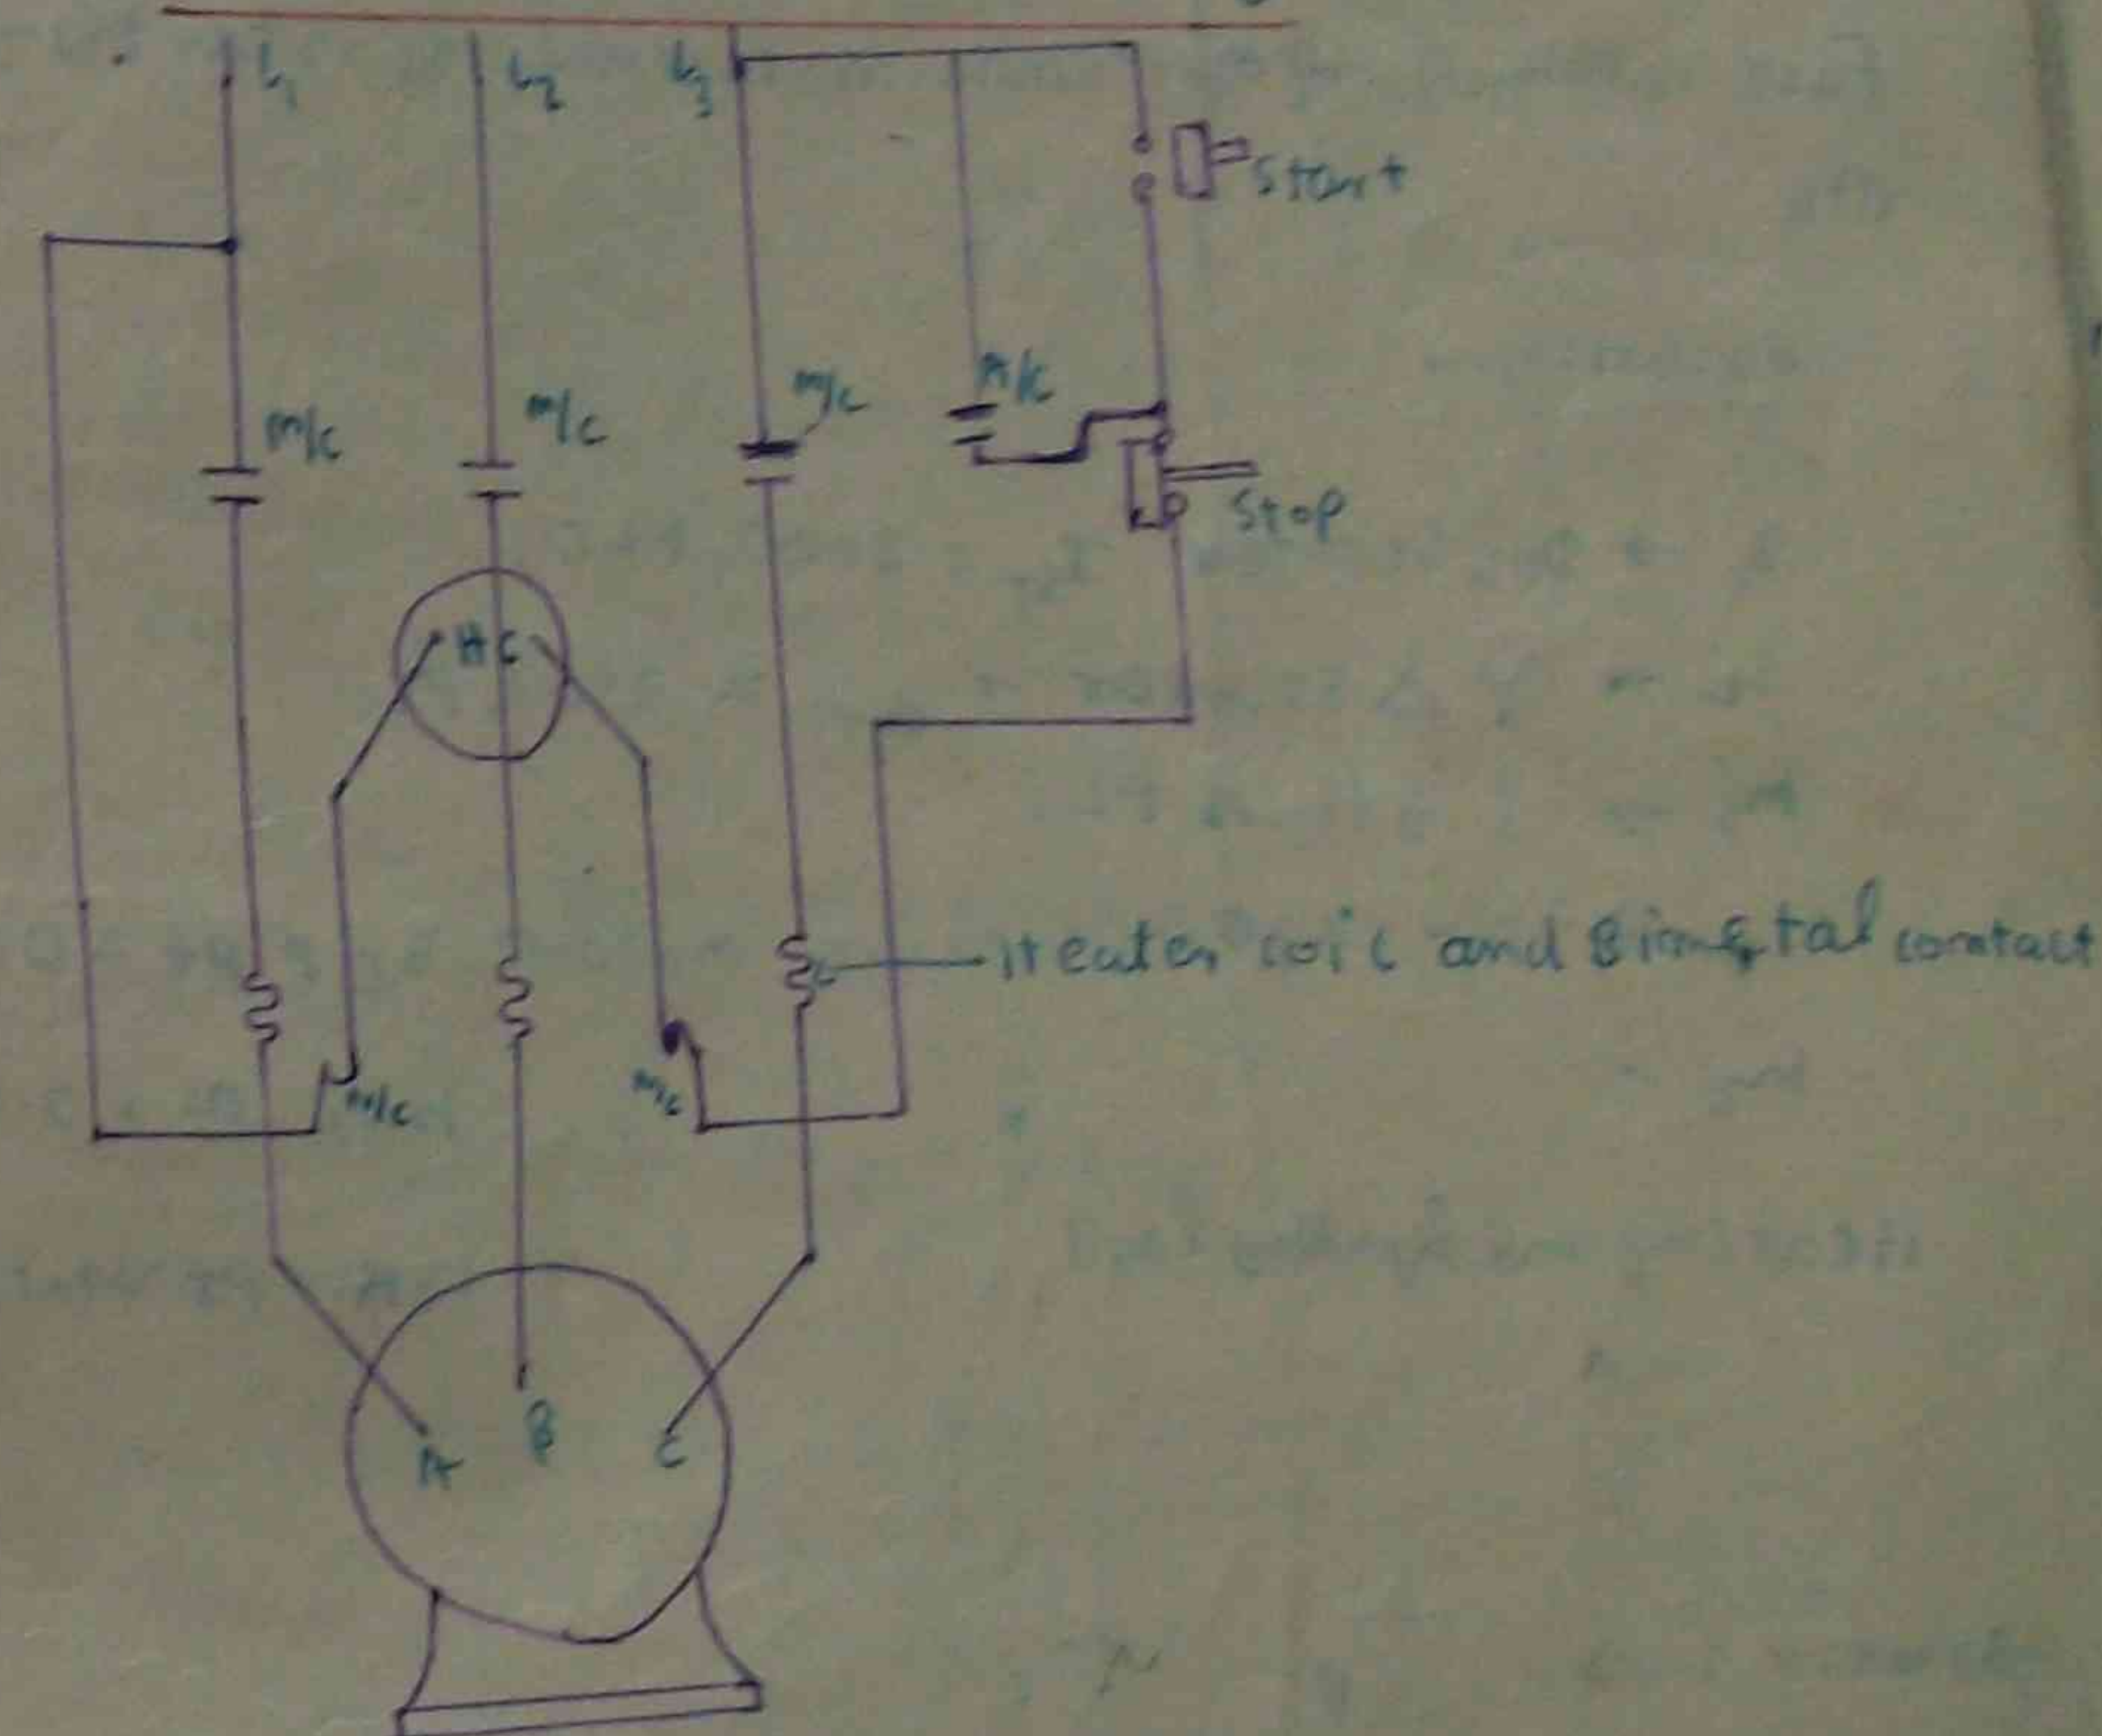 L1 L2 L3
Start
M/C M/C M/C A/C
Stop
HC
Heater coil and Bimetal contact
M/C M/C
A B C